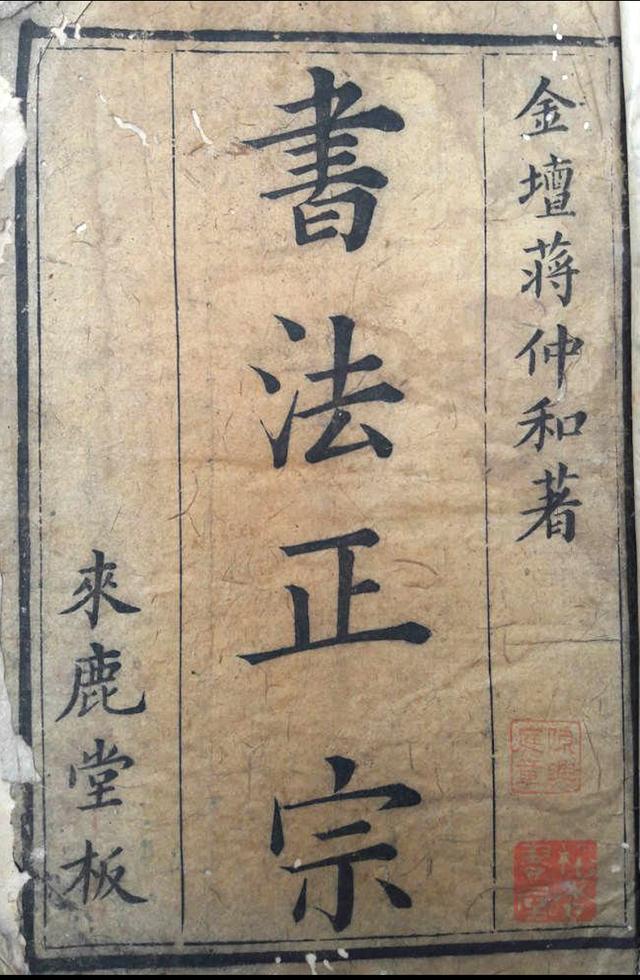 金壇蔣仲和著
書法正宗
來鹿堂板